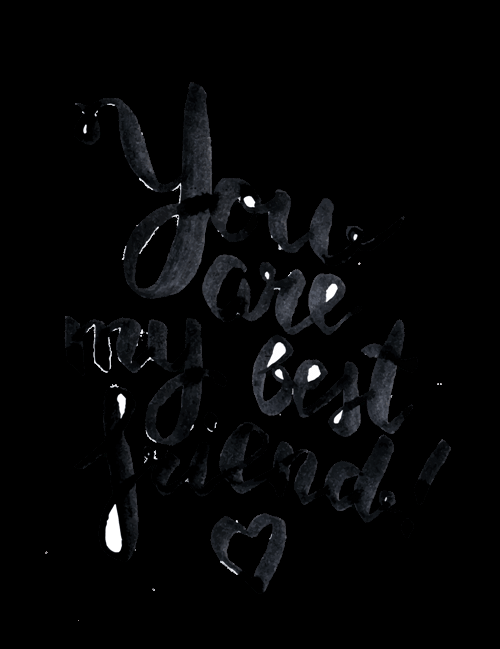 You
are
my best
friend!